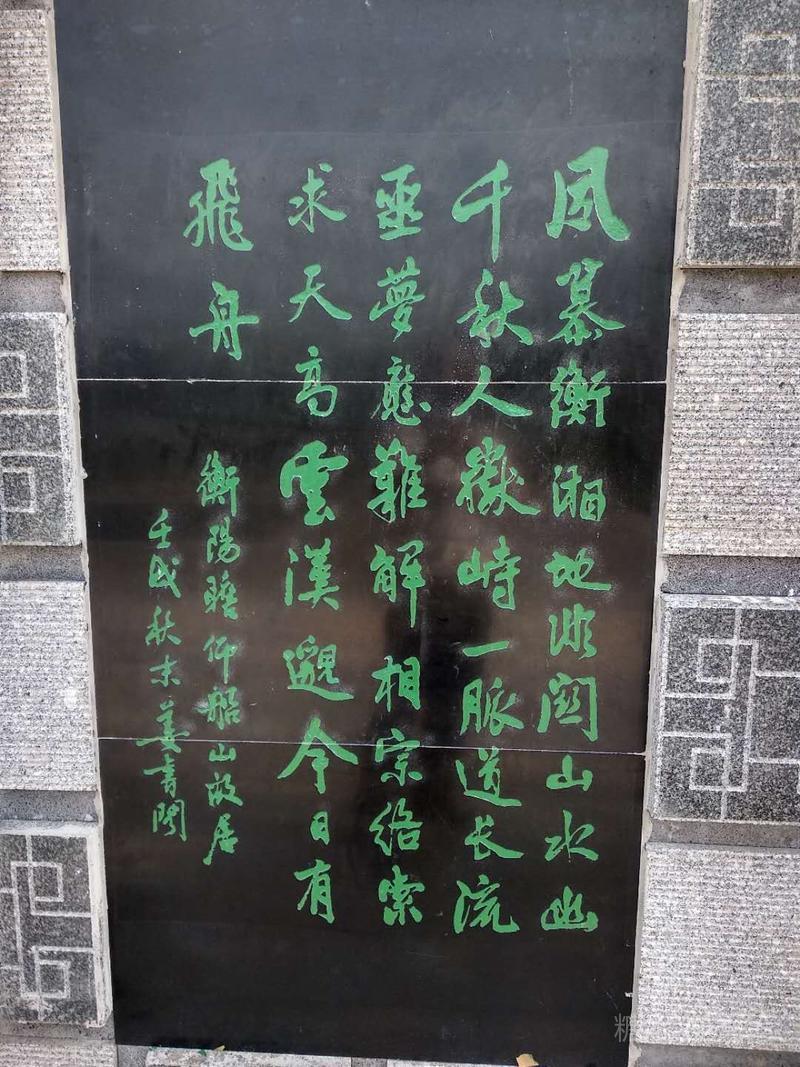 夙慕衡湘地關山水幽
千秋人嶽峙一脈道长流
噩夢應難解相宗絡索
求天高雲漢邈今日有
飛舟
衡陽瞻仰船山故居
壬戌秋末姜書閣